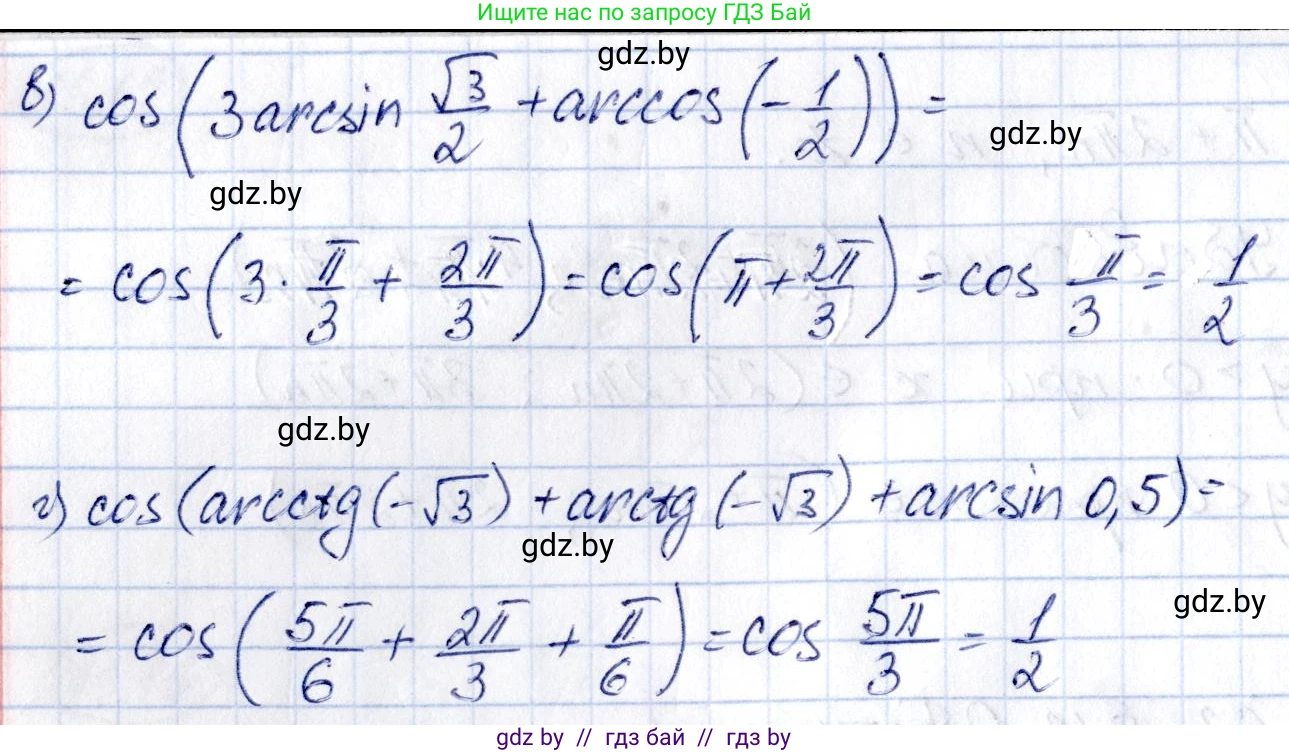 Ищите нас по запросу ГДЗ Бай
gdz.by
в) cos(3 arcsin √3/2 + arccos(-1/2)) =
gdz.by
gdz.by
= cos(3 · π/3 + 2π/3) = cos(π + 2π/3) = cos π/3 = 1/2
gdz.by
г) cos(arcctg(-√3) + arctg(-√3) + arcsin 0,5) =
gdz.by
gdz.by
= cos(5π/6 + 2π/3 + π/6) = cos 5π/3 = 1/2
gdz by // гдз бай // гдз by